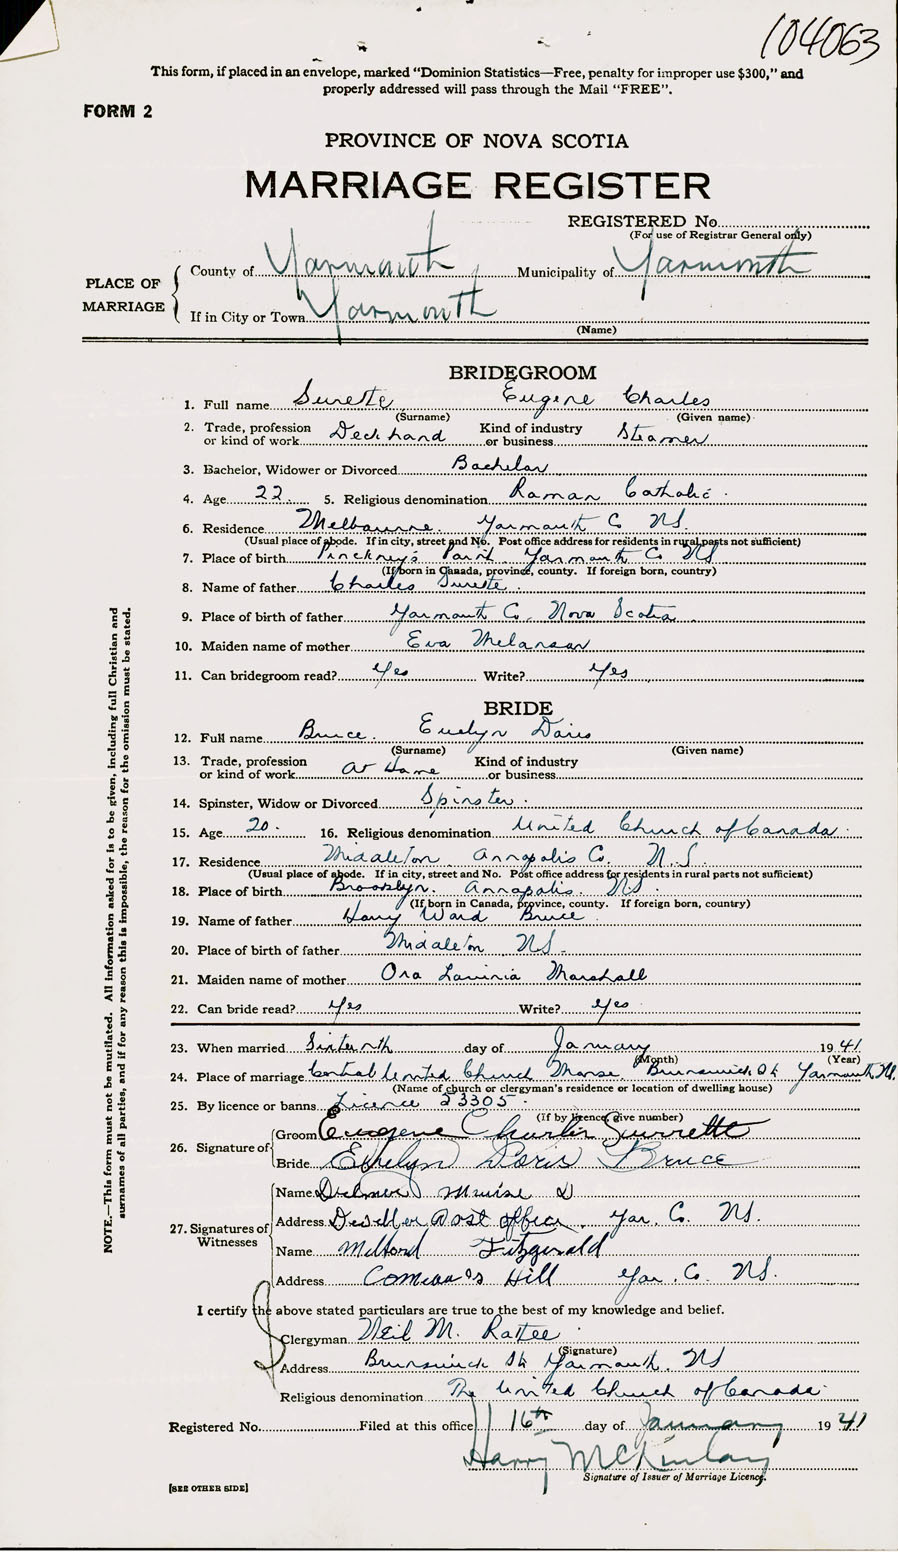 104063
This form, if placed in an envelope, marked "Dominion Statistics—Free, penalty for improper use $300," and
properly addressed will pass through the Mail "FREE".
FORM 2
PROVINCE OF NOVA SCOTIA
MARRIAGE REGISTER
REGISTERED No.
(For use of Registrar General only)
PLACE OF MARRIAGE
County of Yarmouth Municipality of Yarmouth
If in City or Town Yarmouth
(Name)
BRIDEGROOM
1. Full name Surette Eugene Charles
(Surname) (Given name)
2. Trade, profession or kind of work Deckhand Kind of industry or business Steamer
3. Bachelor, Widower or Divorced Bachelor
4. Age 22. 5. Religious denomination Roman Catholic.
6. Residence Melbourne. Yarmouth Co NS.
(Usual place of abode. If in city, street and No. Post office address for residents in rural parts not sufficient)
7. Place of birth Pinckney's Point Yarmouth Co NS
(If born in Canada, province, county. If foreign born, country)
8. Name of father Charles Surette.
9. Place of birth of father Yarmouth Co. Nova Scotia
10. Maiden name of mother Eva Melanson
11. Can bridegroom read? Yes Write? Yes
BRIDE
12. Full name Bruce. Evelyn Doris
(Surname) (Given name)
13. Trade, profession or kind of work At Home Kind of industry or business
14. Spinster, Widow or Divorced Spinster.
15. Age 20. 16. Religious denomination United Church of Canada.
17. Residence Middleton Annapolis Co. N.S.
(Usual place of abode. If in city, street and No. Post office address for residents in rural parts not sufficient)
18. Place of birth Brooklyn. Annapolis. NS.
(If born in Canada, province, county. If foreign born, country)
19. Name of father Harry Ward Bruce.
20. Place of birth of father Middleton NS.
21. Maiden name of mother Ora Lavinia Marshall
22. Can bride read? Yes Write? Yes.
23. When married Sixteenth day of January 1941
(Month) (Year)
24. Place of marriage Central United Church Manse. Brunswick St Yarmouth NS.
(Name of church or clergyman's residence or location of dwelling house)
25. By licence or banns Licence 23305.
(If by licence, give number)
26. Signature of
Groom Eugene Charles Surrette
Bride Evelyn Doris Bruce
27. Signatures of Witnesses
Name Muise D
Address Post office. Yar. Co. NS.
Name Milford Fitzgerald
Address Comeau's Hill Yar. Co. NS.
I certify the above stated particulars are true to the best of my knowledge and belief.
Clergyman Neil M. Rattee
(Signature)
Address Brunswick St Yarmouth. NS
Religious denomination The United Church of Canada.
Registered No. Filed at this office 16th day of January 1941
Harry McKinlay
Signature of Issuer of Marriage Licence.
[SEE OTHER SIDE]
NOTE.—This form must not be mutilated. All information asked for is to be given, including full Christian and
surnames of all parties, and if for any reason this is impossible, the reason for the omission must be stated.